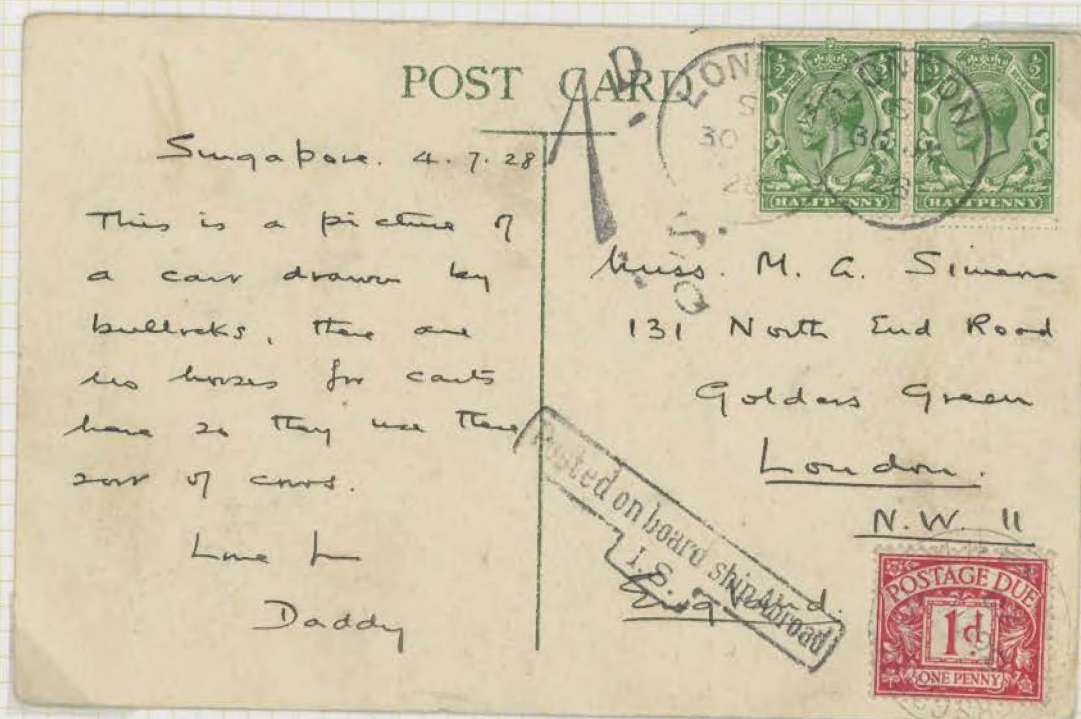 POST CARD
Singapore. 4.7.28
This is a picture of
a cart drawn by
bullocks, there are
no horses for carts
here so they use these
sort of cows.
Love
Daddy
LONDON
30
28
LONDON
30
28
HALFPENNY
HALFPENNY
1D.
Miss. M. G.
131 North End Road
Golders Green
London.
N.W. 11
Posted on board ship Abroad
I.S.
POSTAGE DUE
1d.
ONE PENNY